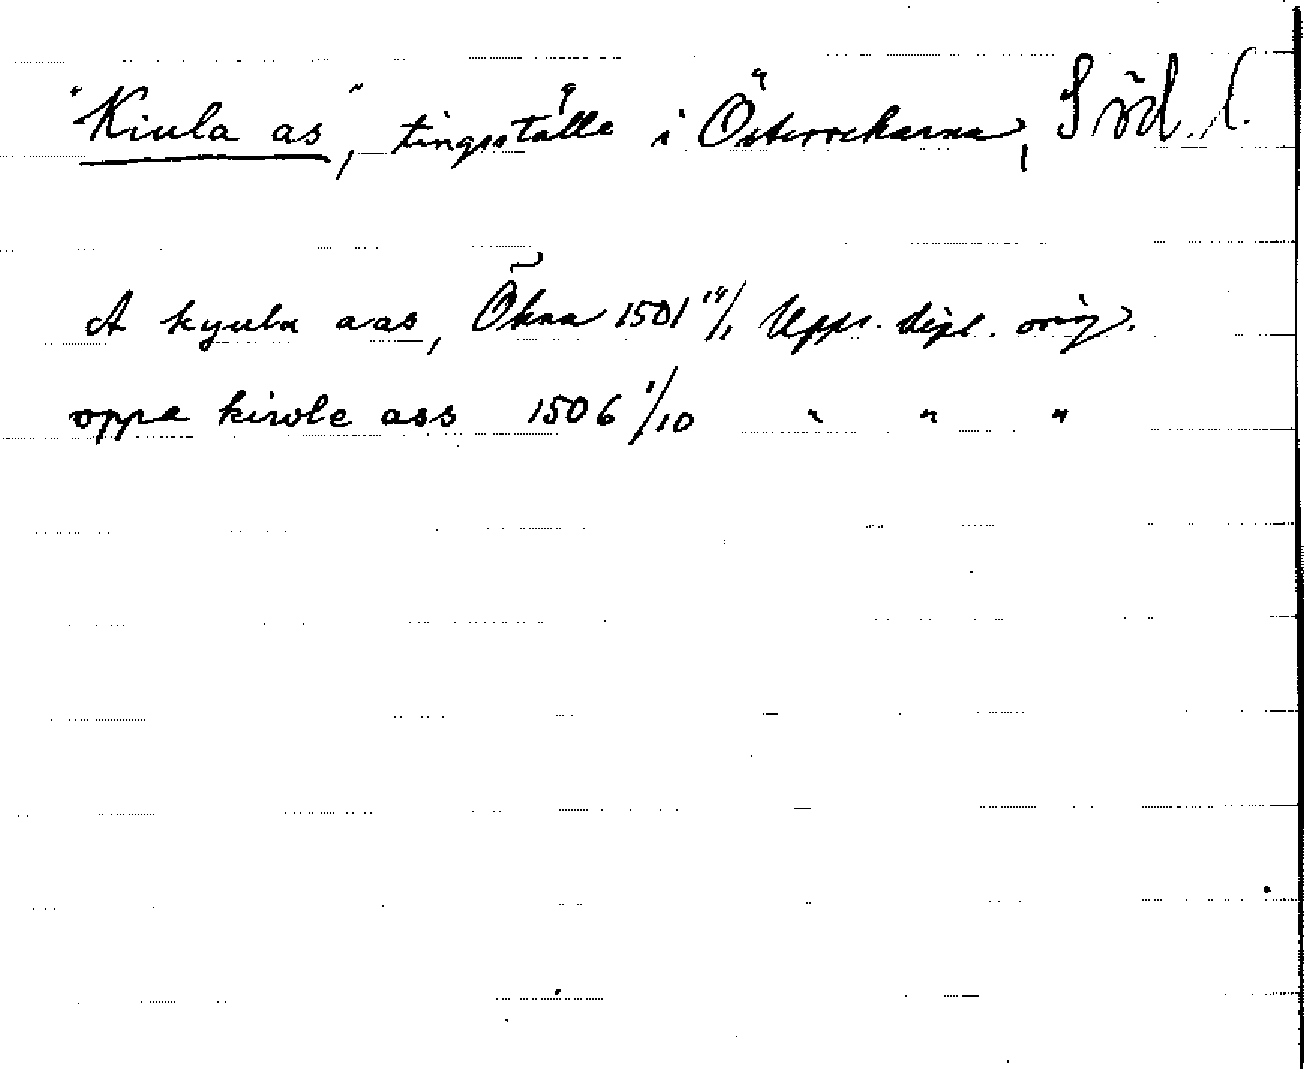 "Kiula as", tingsställe i Österrekarna, Söd. l.
A kyula aas, Ökna 1501 19/1 Upps. dipl. orig.
oppa kiwle ass 1506 1/10 " " "